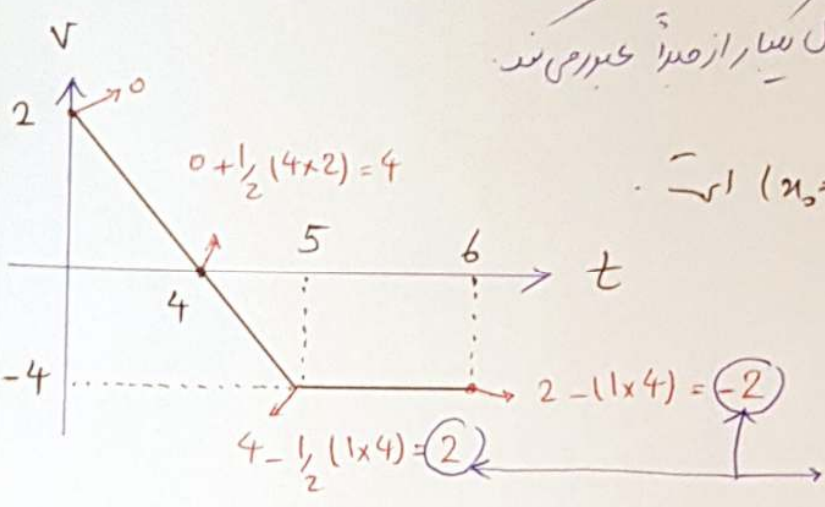 V
بار از مبدأ عبور می کند.
2
0
0 + 1/2 (4×2) = 4
(x₀= است .
5
6
t
4
-4
2 - (1×4) = -2
4 - 1/2 (1×4) = 2